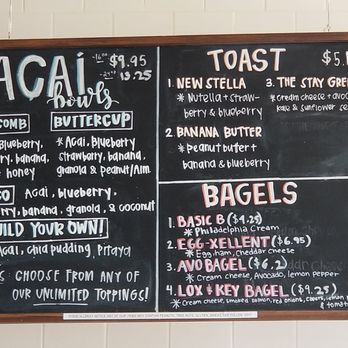 ACAI
bowls
16oz $9.95
24oz 13.25
COMB
BUTTERCUP
blueberry,
banana,
honey
* Acai, blueberry
strawberry, banana,
granola & peanut/Alm.
Acai, blueberry,
banana, granola, & coconut
BUILD YOUR OWN!
acai, chia pudding, Pitaya
CHOOSE FROM ANY OF
OUR UNLIMITED TOPPINGS!
TOAST $5.
1. NEW STELLA
* Nutella + straw-
berry & blueberry
2. BANANA BUTTER
* Peanut butter +
banana & blueberry
3. THE STAY GRE
* cream cheese + avoc
kale & sunflower se
BAGELS
1. BASIC B ($4.25)
* Philadelphia Cream
2. EGG-XELLENT ($6.95)
* Egg ham, cheddar Cheese
3. AVO BAGEL ($6.2
* Cream cheese, Avocado, lemon pepper
4. LOX & KEY BAGEL ($9.25)
* Cream cheese, smoked salmon, red onions, capers, lemon p
& tomato